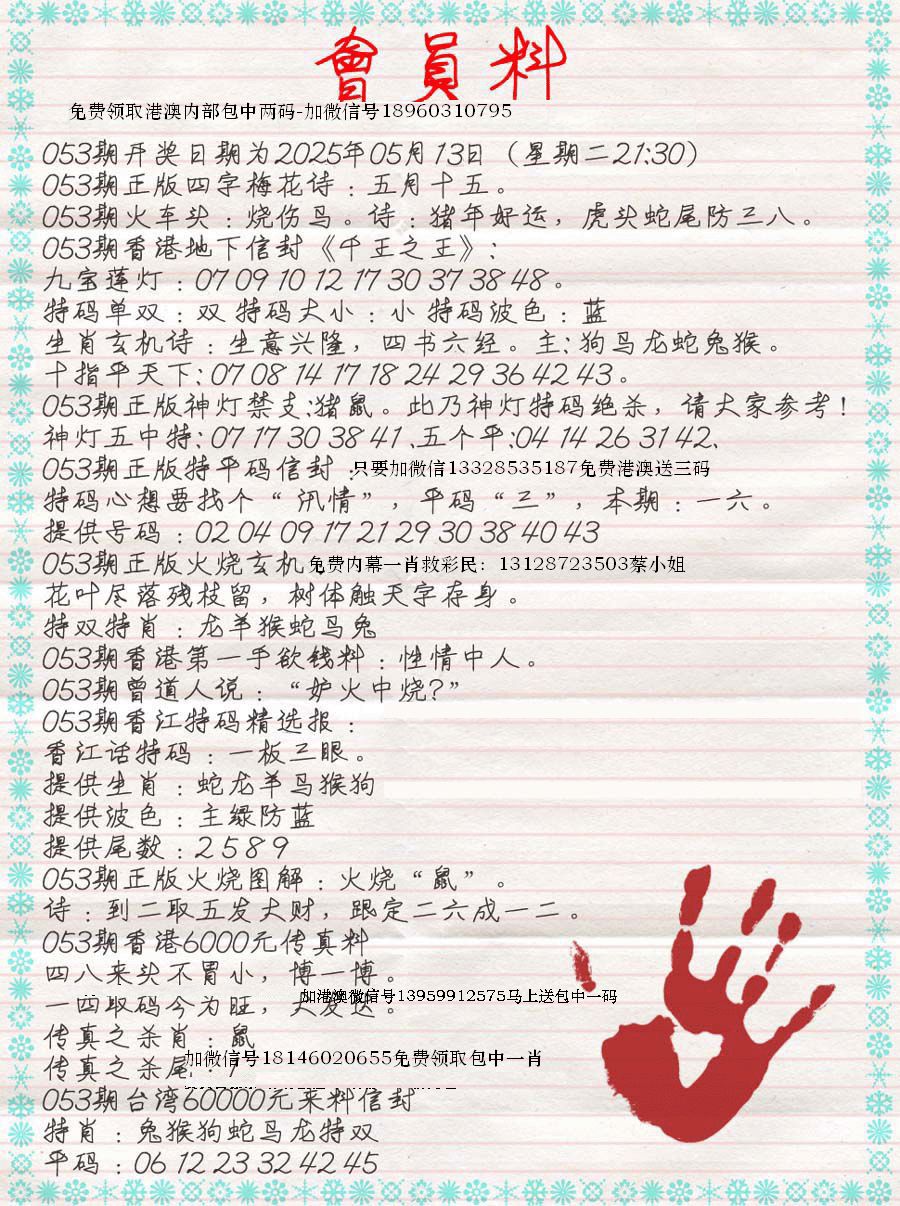 會員料
免费领取港澳内部包中两码-加微信号18960310795
053期开奖日期为2025年05月13日（星期二21:30）
053期正版四字梅花诗：五月十五。
053期火车头：烧伤鸟。诗：猪年好运，虎头蛇尾防三八。
053期香港地下信封《千王之王》：
九宝莲灯：07 09 10 12 17 30 37 38 48。
特码单双：双 特码大小：小 特码波色：蓝
生肖玄机诗：生意兴隆，四书六经。主:狗马龙蛇兔猴。
十指平天下:07 08 14 17 18 24 29 36 42 43。
053期正版神灯禁支:猪鼠。此乃神灯特码绝杀，请大家参考！
神灯五中特:07 17 30 38 41、五个平:04 14 26 31 42、
053期正版特平码信封：只要加微信13328535187免费港澳送三码
特码心想要找个“汛情”，平码“三”，本期：一六。
提供号码：02 04 09 17 21 29 30 38 40 43
053期正版火烧玄机 免费内幕一肖救彩民：13128723503蔡小姐
花叶尽落残枝留，树体触天字存身。
特双特肖：龙羊猴蛇马兔
053期香港第一手欲钱料：性情中人。
053期曾道人说：“妒火中烧?”
053期香江特码精选报：
香江话特码：一板三眼。
提供生肖：蛇龙羊马猴狗
提供波色：主绿防蓝
提供尾数：2 5 8 9
053期正版火烧图解：火烧“鼠”。
诗：到二取五发大财，跟定二六成一二。
053期香港6000元传真料
四八来头不冒小，博一博。
一四取码今为旺，大发达。
加港澳微信号13959912575马上送包中一码
传真之杀肖：鼠
加微信号18146020655免费领取包中一肖
传真之杀尾：
053期台湾60000元来料信封
特肖：兔猴狗蛇马龙特双
平码：06 12 23 32 42 45